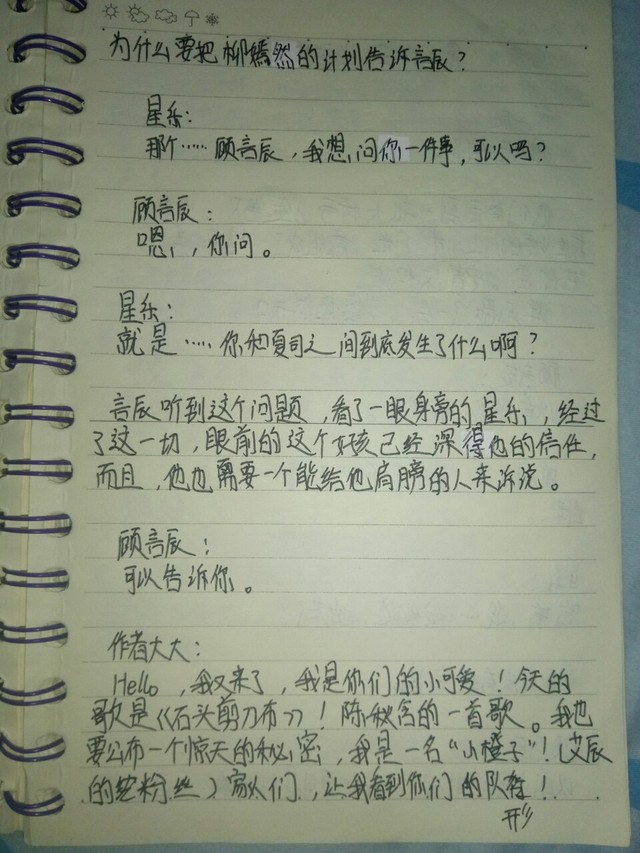 为什么要把柳嫣然的计划告诉言辰？
星乐：
那个……顾言辰，我想问你一件事，可以吗？
顾言辰：
嗯，你问。
星乐：
就是……你和夏司之间到底发生了什么啊？
言辰听到这个问题，看了一眼身旁的星乐，经过
了这一切，眼前的这个女孩已经深得他的信任，
而且，他也需要一个能给他肩膀的人来诉说。
顾言辰：
可以告诉你。
作者大大：
Hello，我又来了，我是你们的小可爱！今天的
歌是《石头剪刀布》！陈秋含的一首歌。我也
要公布一个惊天的秘密，我是一名“小橙子”！（艾辰
的铁粉丝）家人们，让我看到你们的队形！